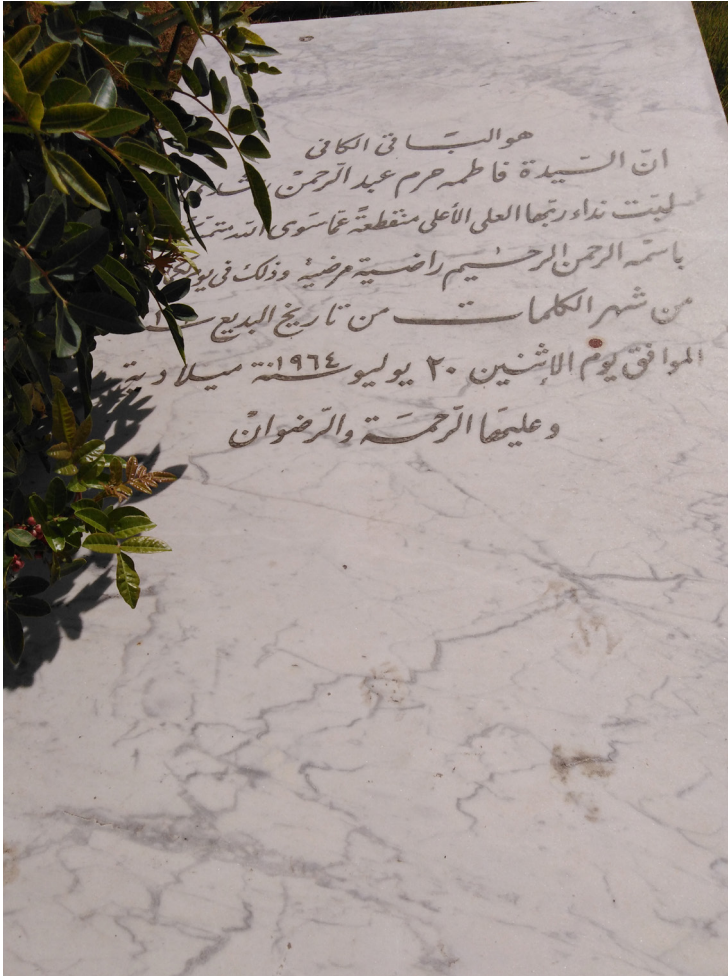 هو البَاقي الكافي
انّ السّيدة فاطمه حرم عبد الرّحمن رشدي
لبّت نداء ربّها العلي الأعلى منقطعةً عمّا سوى الله متمتمة
باسمه الرحمن الرحيم راضية مرضية وذلك في يوم
من شهر الكلمات من تاريخ البديع
الموافق يوم الإثنين ٢٠ يوليو سنة ١٩٦٤ ميلادية
وعليهَا الرّحمَة والرّضوان